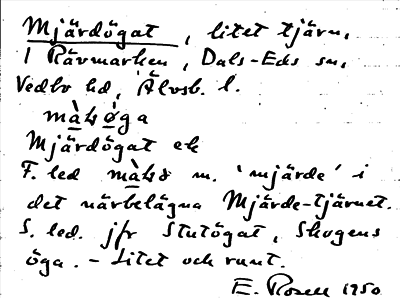 Mjärdögat, litet tjärn,
i Rävmarken, Dals-Eds sn,
Vedbo hd, Älvsb. l.
Mjärdögat ek
F. led m. 'mjärde' i
det närbelägna Mjärde-tjärnet.
S. led. jfr Stutögat, Skogens
öga. - Litet och runt.
E. Rosell 1950